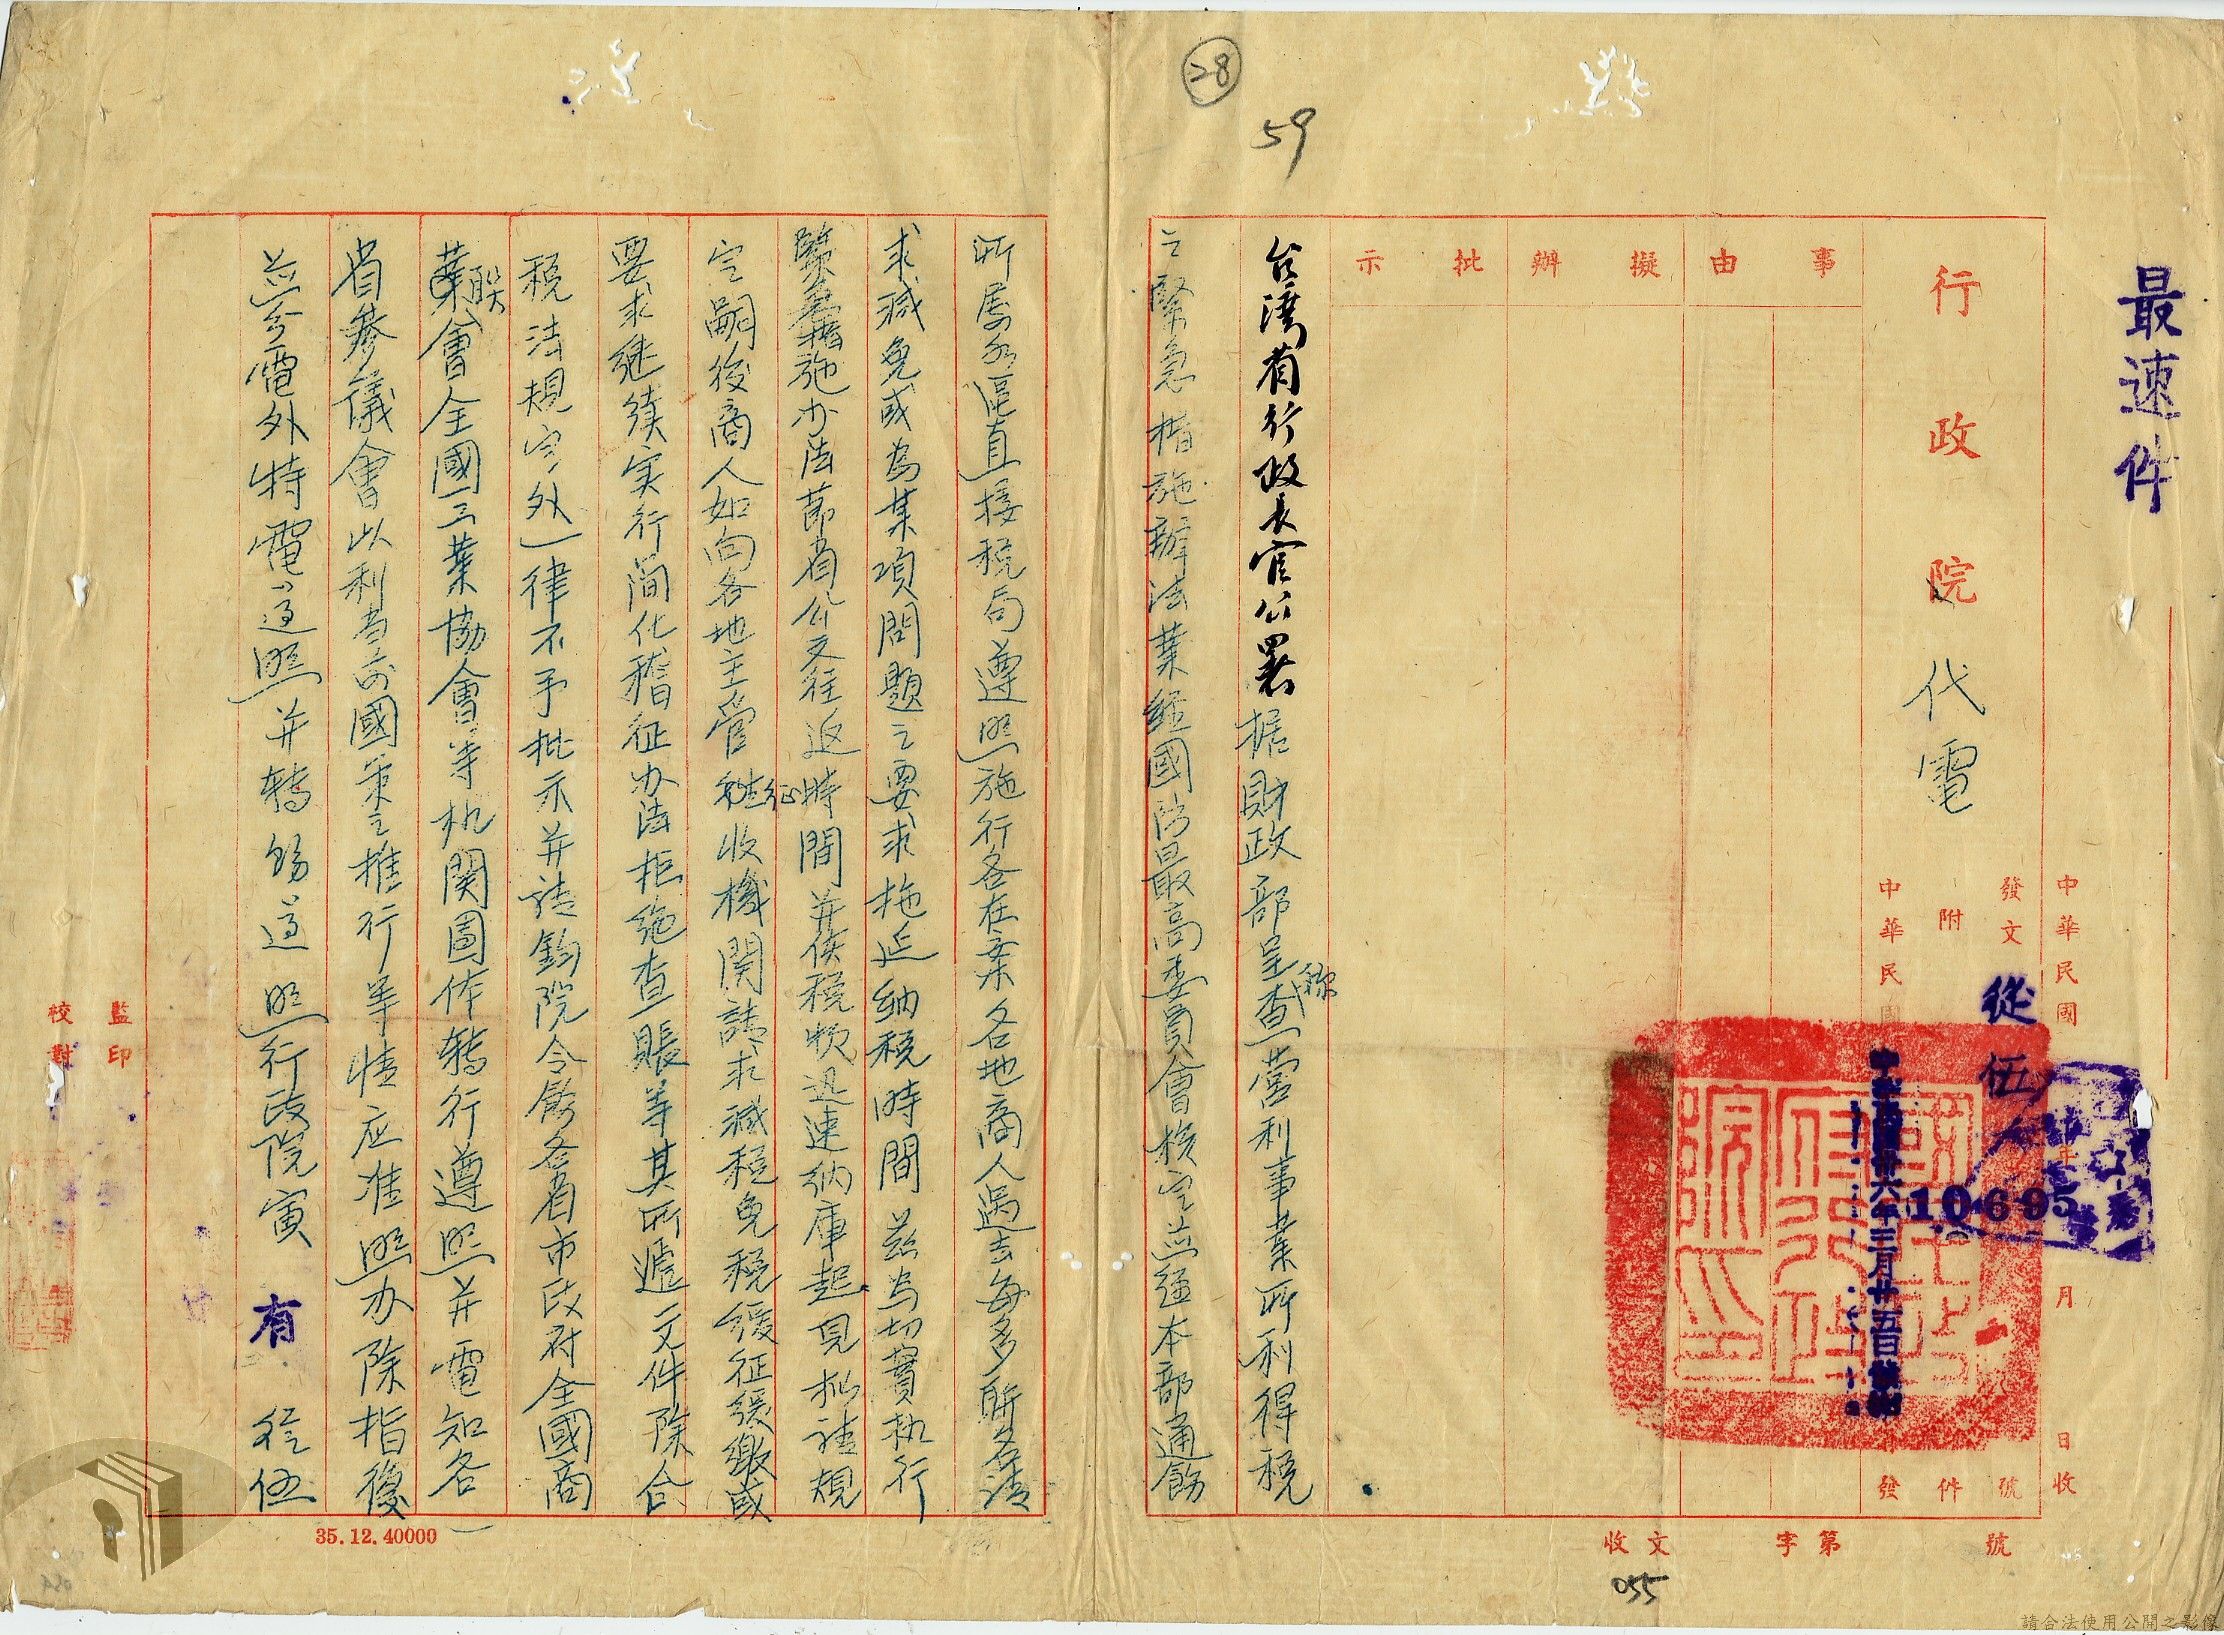 28
59
最速件
行政院代電
中華民國
年
月
日收
發文
從伍
10695
號
附
件
中華民國
中華民國卅六年三月廿五日
發
事由
擬辦
批示
台灣省行政長官公署据財政部呈称查營利事業所利得稅
之緊急措施辦法業經國防最高委員會核定并經本部通飭
所屬各區直接稅局遵照施行各在案各地商人過去每多聯名請
求減免或為某項問題之要求拖延納稅時間茲為切實執行
緊急措施办法節省公文往返時間并俟稅款迅速納庫起見擬請規
定嗣後商人如向各地主管稽征收機関請求減稅免稅緩征緩繳或
要求继续实行简化稽征办法拒绝查賬等其所遞文件除合
稅法規定外一律不予批示并請鈞院令飭各省市政府全國商
聯會全國工業協會等机関團体转行遵照并電知各
省參議會以利當前國策之推行等情应准照办除指復
並分電外特電遵照并转飭遵照行政院寅有從伍
監印
校對
35.12.40000
收文
字第
號
055
請合法使用公開之影像